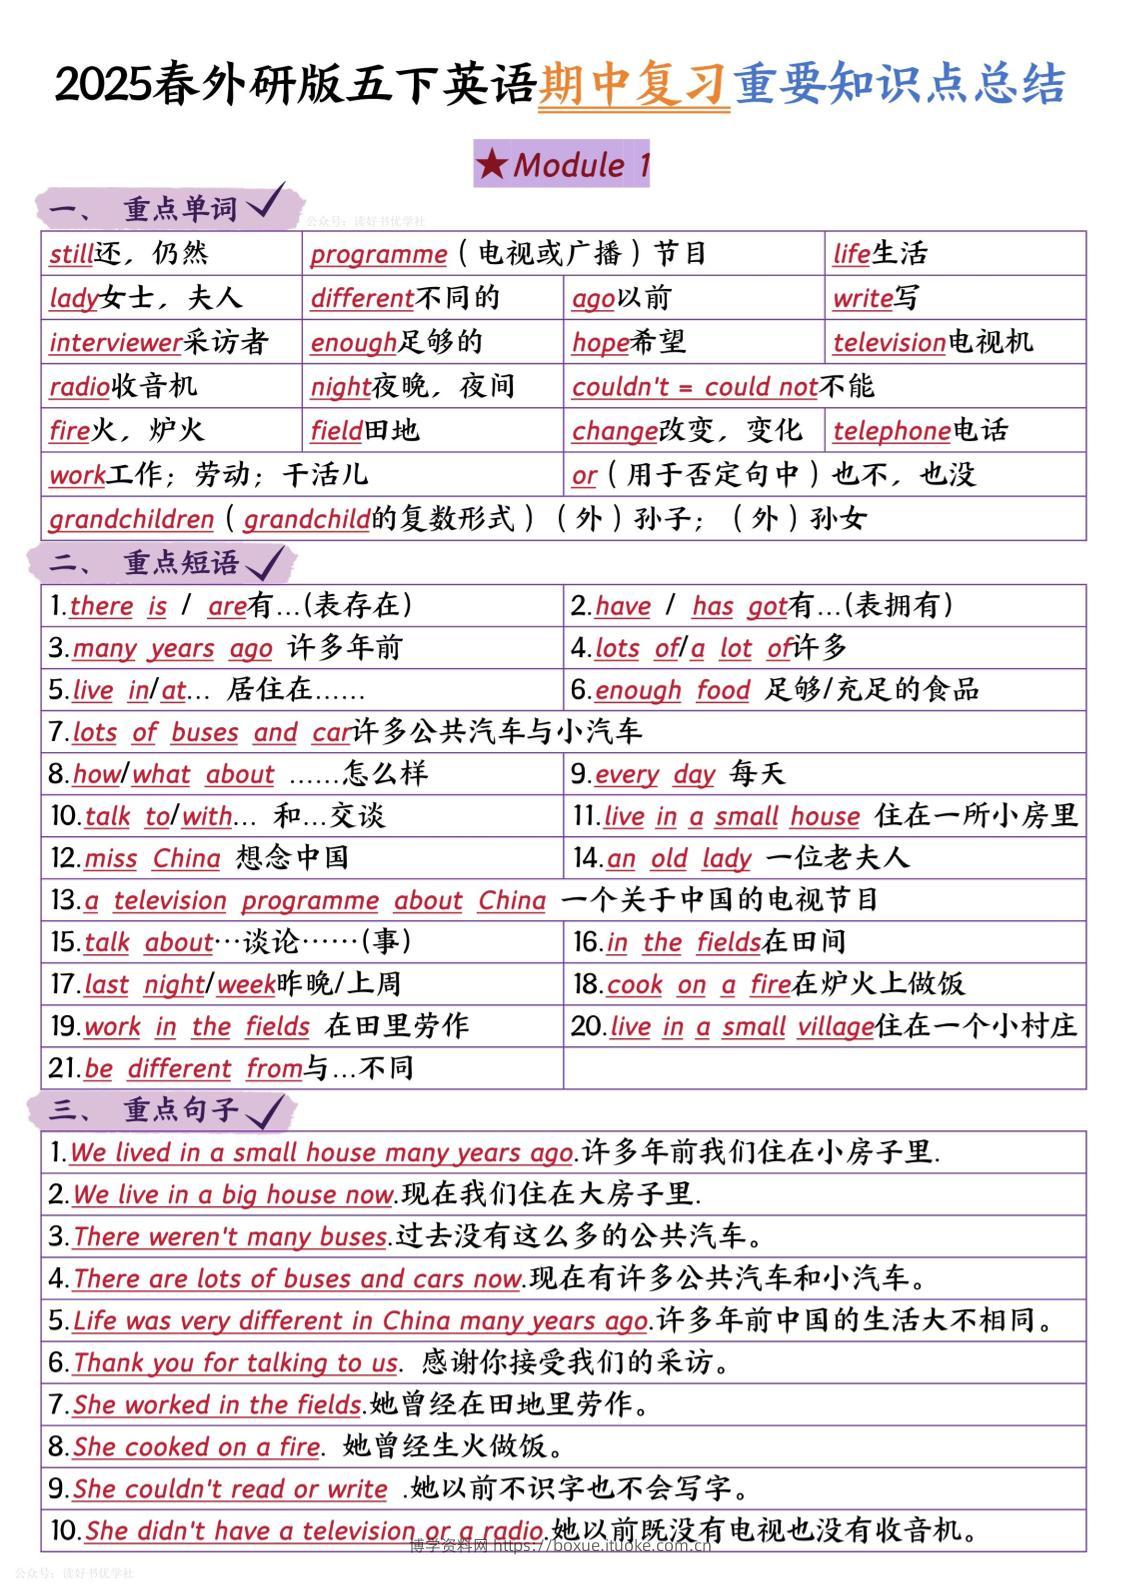 2025春外研版五下英语期中复习重要知识点总结
★Module 1
一、 重点单词
公众号：读好书优学社
still还，仍然 programme（电视或广播）节目 life生活
lady女士，夫人 different不同的 ago以前 write写
interviewer采访者 enough足够的 hope希望 television电视机
radio收音机 night夜晚，夜间 couldn't = could not不能
fire火，炉火 field田地 change改变，变化 telephone电话
work工作；劳动；干活儿 or（用于否定句中）也不，也没
grandchildren（grandchild的复数形式）（外）孙子；（外）孙女
二、 重点短语
1.there is / are有…(表存在) 2.have / has got有…(表拥有)
3.many years ago 许多年前 4.lots of/a lot of许多
5.live in/at… 居住在…… 6.enough food 足够/充足的食品
7.lots of buses and car许多公共汽车与小汽车
8.how/what about ……怎么样 9.every day 每天
10.talk to/with… 和…交谈 11.live in a small house 住在一所小房里
12.miss China 想念中国 14.an old lady 一位老夫人
13.a television programme about China 一个关于中国的电视节目
15.talk about…谈论……(事) 16.in the fields在田间
17.last night/week昨晚/上周 18.cook on a fire在炉火上做饭
19.work in the fields 在田里劳作 20.live in a small village住在一个小村庄
21.be different from与…不同
三、 重点句子
1.We lived in a small house many years ago.许多年前我们住在小房子里.
2.We live in a big house now.现在我们住在大房子里.
3.There weren't many buses.过去没有这么多的公共汽车。
4.There are lots of buses and cars now.现在有许多公共汽车和小汽车。
5.Life was very different in China many years ago.许多年前中国的生活大不相同。
6.Thank you for talking to us. 感谢你接受我们的采访。
7.She worked in the fields.她曾经在田地里劳作。
8.She cooked on a fire. 她曾经生火做饭。
9.She couldn't read or write .她以前不识字也不会写字。
10.She didn't have a television or a radio.她以前既没有电视也没有收音机。
博学资料网 https://boxue.ituoke.com.cn
公众号：读好书优学社